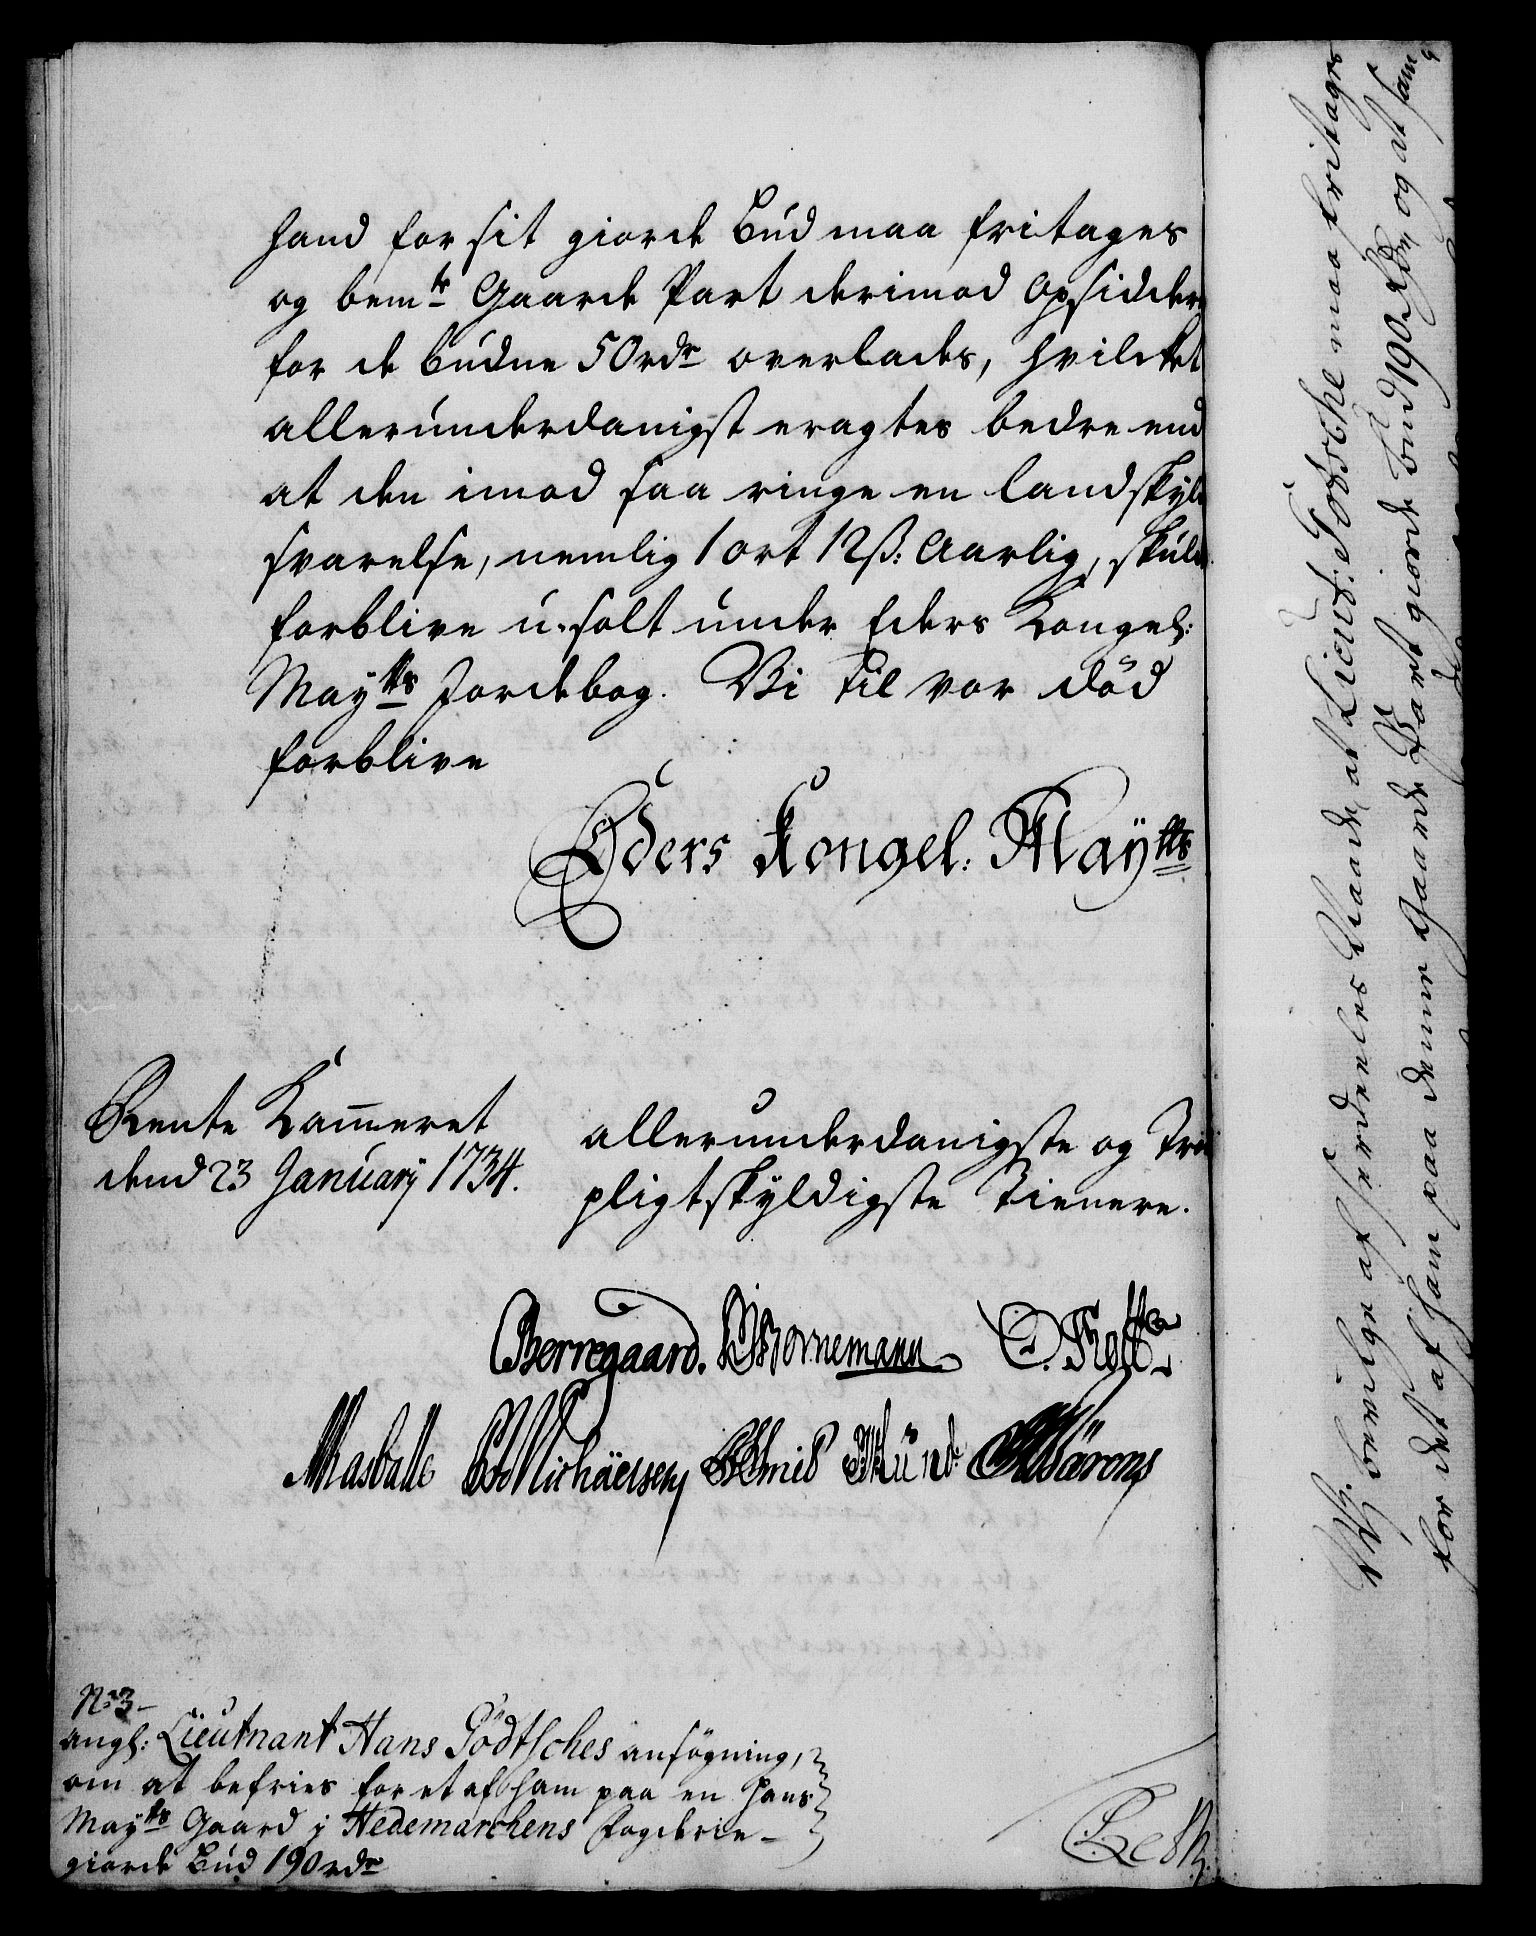 hand for sit giorde Bud maa fritages
og bemte Gaarde Part derimod Opsidder
for de budne 50 rdr overlades, hvilcket
allerunderdanigst eragtes bedre end
at den imod saa ringe en landskyld
svarelse, nemlig 1 ort 12 ß: Aarlig, skulde
forblive u-solt under Eders Kongel:
Maytts Jordebog. Vi til vor död
forblive
Eders Kongel. Maytts
Rente Kammeret
dend 23 Januarij 1734.
allerunderdanigste og Troe
pligtskyldigste Tienere.
Berregaard. Bornemann
Masballe Michäelsen
No 3
angl: Lieutnant Hans Gödtsches ansögning,
om at befries for et af ham paa en Hans
Maytts Gaard j Hedemarchens Fogderie
giorde Bud 190 rdr
bevilge af særdeeles Naade, at Lieut: maa fritages
for det af ham paa denne Gaarde Part giorde bud 190 Rdr, og at sam